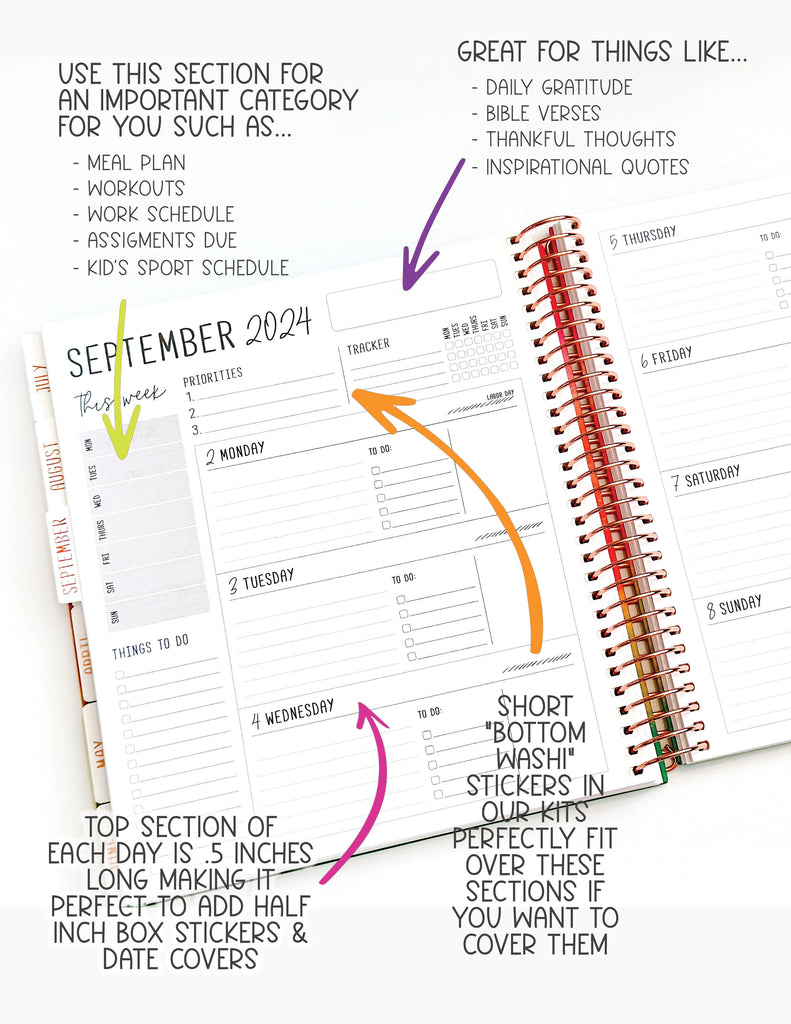 USE THIS SECTION FOR
AN IMPORTANT CATEGORY
FOR YOU SUCH AS...
- MEAL PLAN
- WORKOUTS
- WORK SCHEDULE
- ASSIGMENTS DUE
- KID'S SPORT SCHEDULE
GREAT FOR THINGS LIKE...
- DAILY GRATITUDE
- BIBLE VERSES
- THANKFUL THOUGHTS
- INSPIRATIONAL QUOTES
SEPTEMBER 2024
This week
MON
TUES
WED
THURS
FRI
SAT
SUN
THINGS TO DO
PRIORITIES
1.
2.
3.
TRACKER
MON
TUES
WED
THURS
FRI
SAT
SUN
LABOR DAY
2 MONDAY
TO DO:
3 TUESDAY
TO DO:
4 WEDNESDAY
TO DO:
5 THURSDAY
TO DO:
6 FRIDAY
7 SATURDAY
8 SUNDAY
JULY
AUGUST
SEPTEMBER
APRIL
MAY
TOP SECTION OF
EACH DAY IS .5 INCHES
LONG MAKING IT
PERFECT TO ADD HALF
INCH BOX STICKERS &
DATE COVERS
SHORT
"BOTTOM
WASHI"
STICKERS IN
OUR KITS
PERFECTLY FIT
OVER THESE
SECTIONS IF
YOU WANT TO
COVER THEM